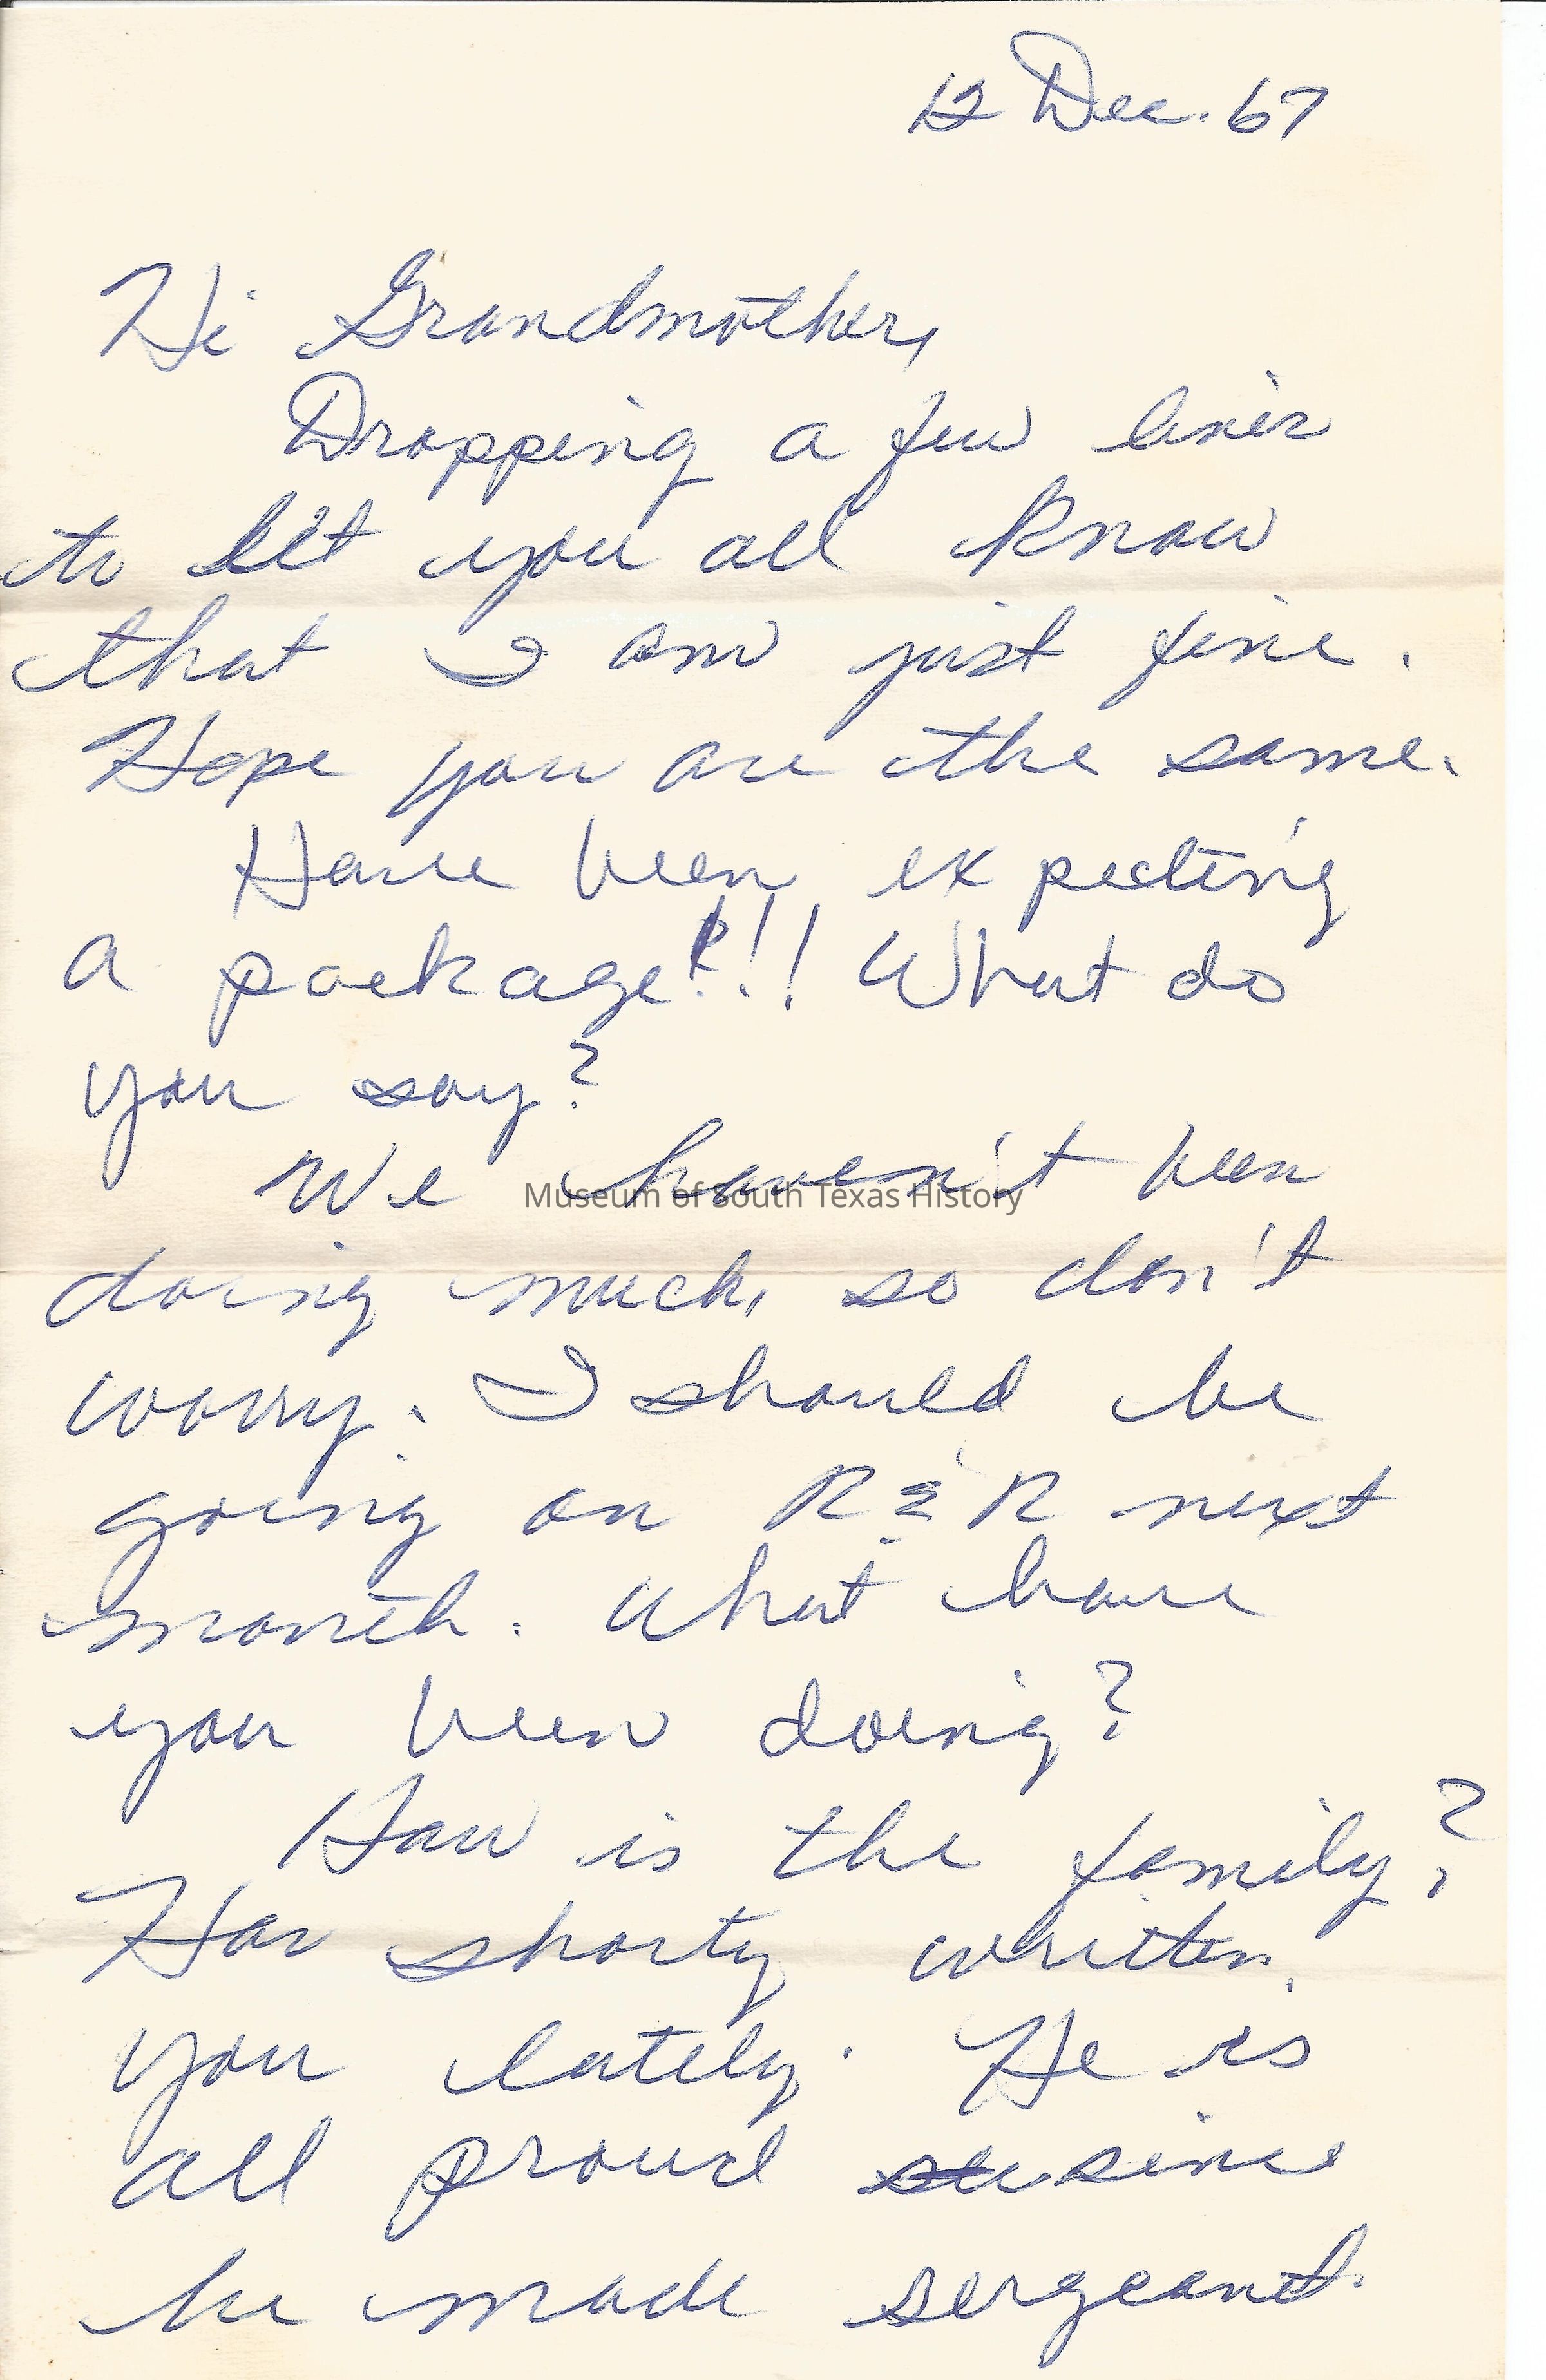 12 Dec. 67
Hi Grandmother,
Dropping a few lines
to let you all know
that I am just fine.
Hope you are the same.
Have been expecting
a package!!! What do
you say?
We haven't been
Museum of South Texas History
doing much, so don't
worry. I should be
going on R & R next
month. What have
you been doing?
How is the family?
Has shorty written
you lately. He is
all proud since
he made sergeant.